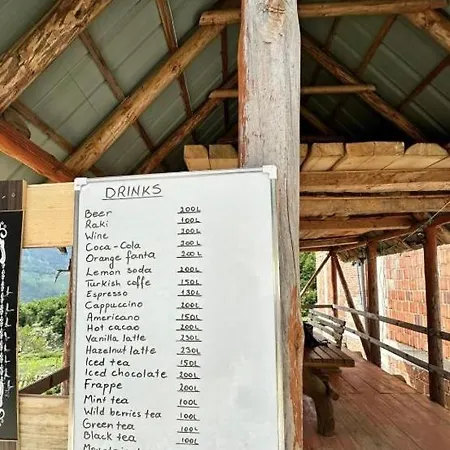 DRINKS
Beer 200L
Raki 100L
Wine 200L
Coca-Cola 200L
Orange fanta 200L
Lemon soda 200L
Turkish coffe 150L
Espresso 130L
Cappuccino 200L
Americano 150L
Hot cacao 200L
Vanilla latte 230L
Hazelnut latte 230L
Iced tea 150L
Iced chocolate 200L
Frappe 200L
Mint tea 100L
Wild berries tea 100L
Green tea 100L
Black tea 100L